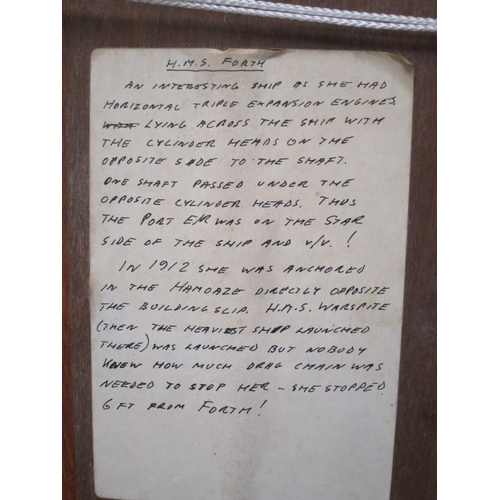 H.M.S. FORTH
AN INTERESTING SHIP AS SHE HAD
HORIZONTAL TRIPLE EXPANSION ENGINES
LYING ACROSS THE SHIP WITH
THE CYLINDER HEADS ON THE
OPPOSITE SIDE TO THE SHAFT.
ONE SHAFT PASSED UNDER THE
OPPOSITE CYLINDER HEADS. THUS
THE PORT E/R WAS ON THE STAR
SIDE OF THE SHIP AND V/V. !
IN 1912 SHE WAS ANCHORED
IN THE HAMOAZE DIRECTLY OPPOSITE
THE BUILDING SLIP. H.M.S. WARSPITE
(THEN THE HEAVIEST SHIP LAUNCHED
THERE) WAS LAUNCHED BUT NOBODY
KNEW HOW MUCH DRAG CHAIN WAS
NEEDED TO STOP HER - SHE STOPPED
6 FT FROM FORTH!